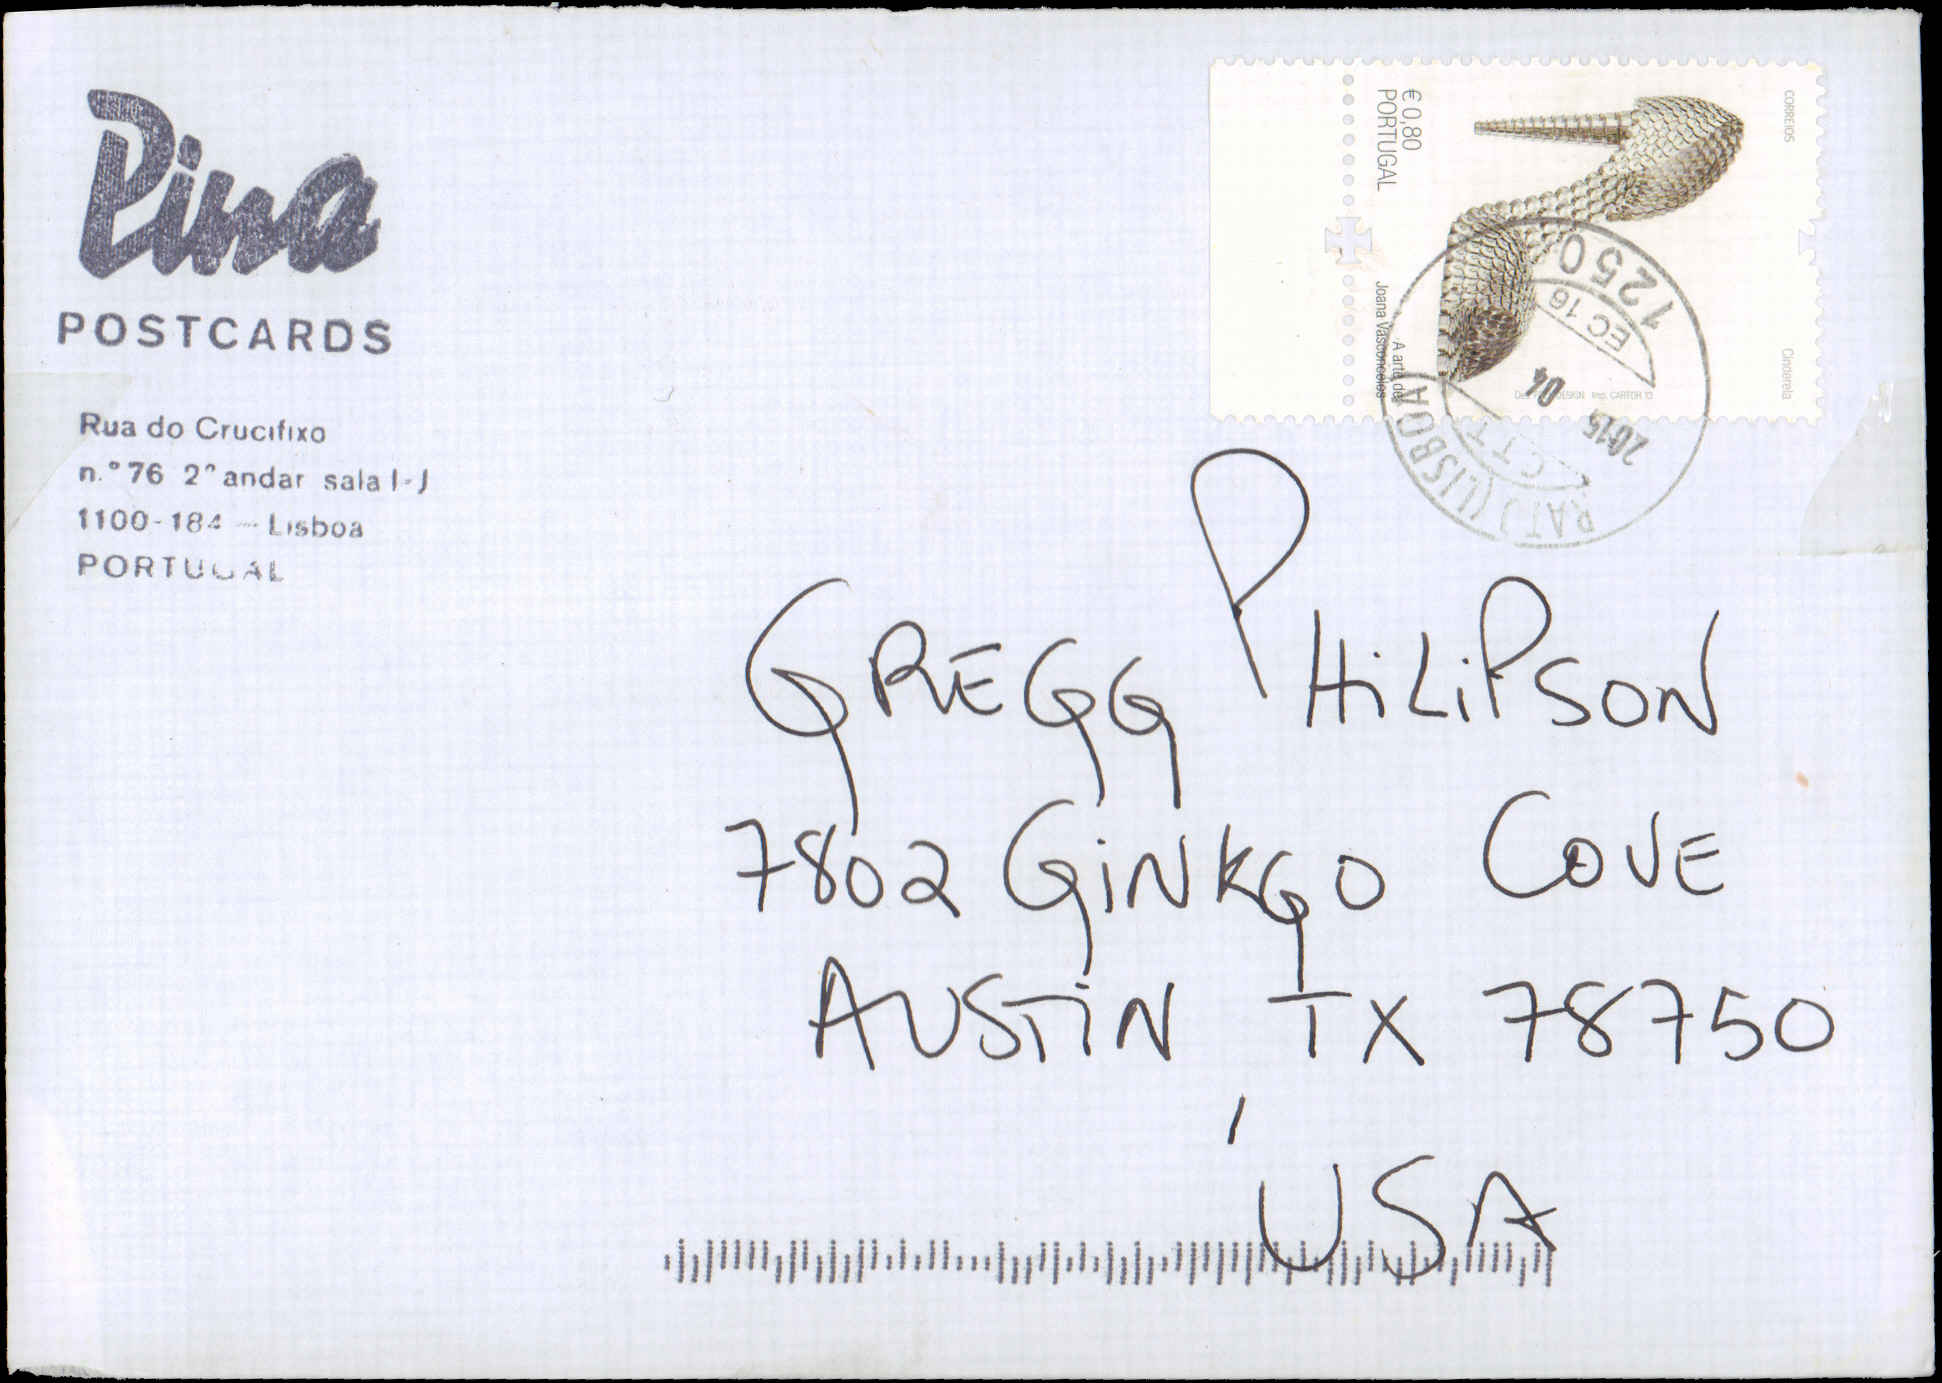 Pina
POSTCARDS
Rua do Crucifixo
n.º 76 2º andar sala I-J
1100-184 - Lisboa
PORTUGAL
€ 0,80
PORTUGAL
Joana Vasconcelos
A arte de
CORREIOS
Cinderela
DESIGN Imp. CARTOR 13
1250
EC 16
2015 04
CTT
RATO (LISBOA
GREGG PHILIPSON
7802 GINKGO COVE
AUSTIN, TX 78750
USA